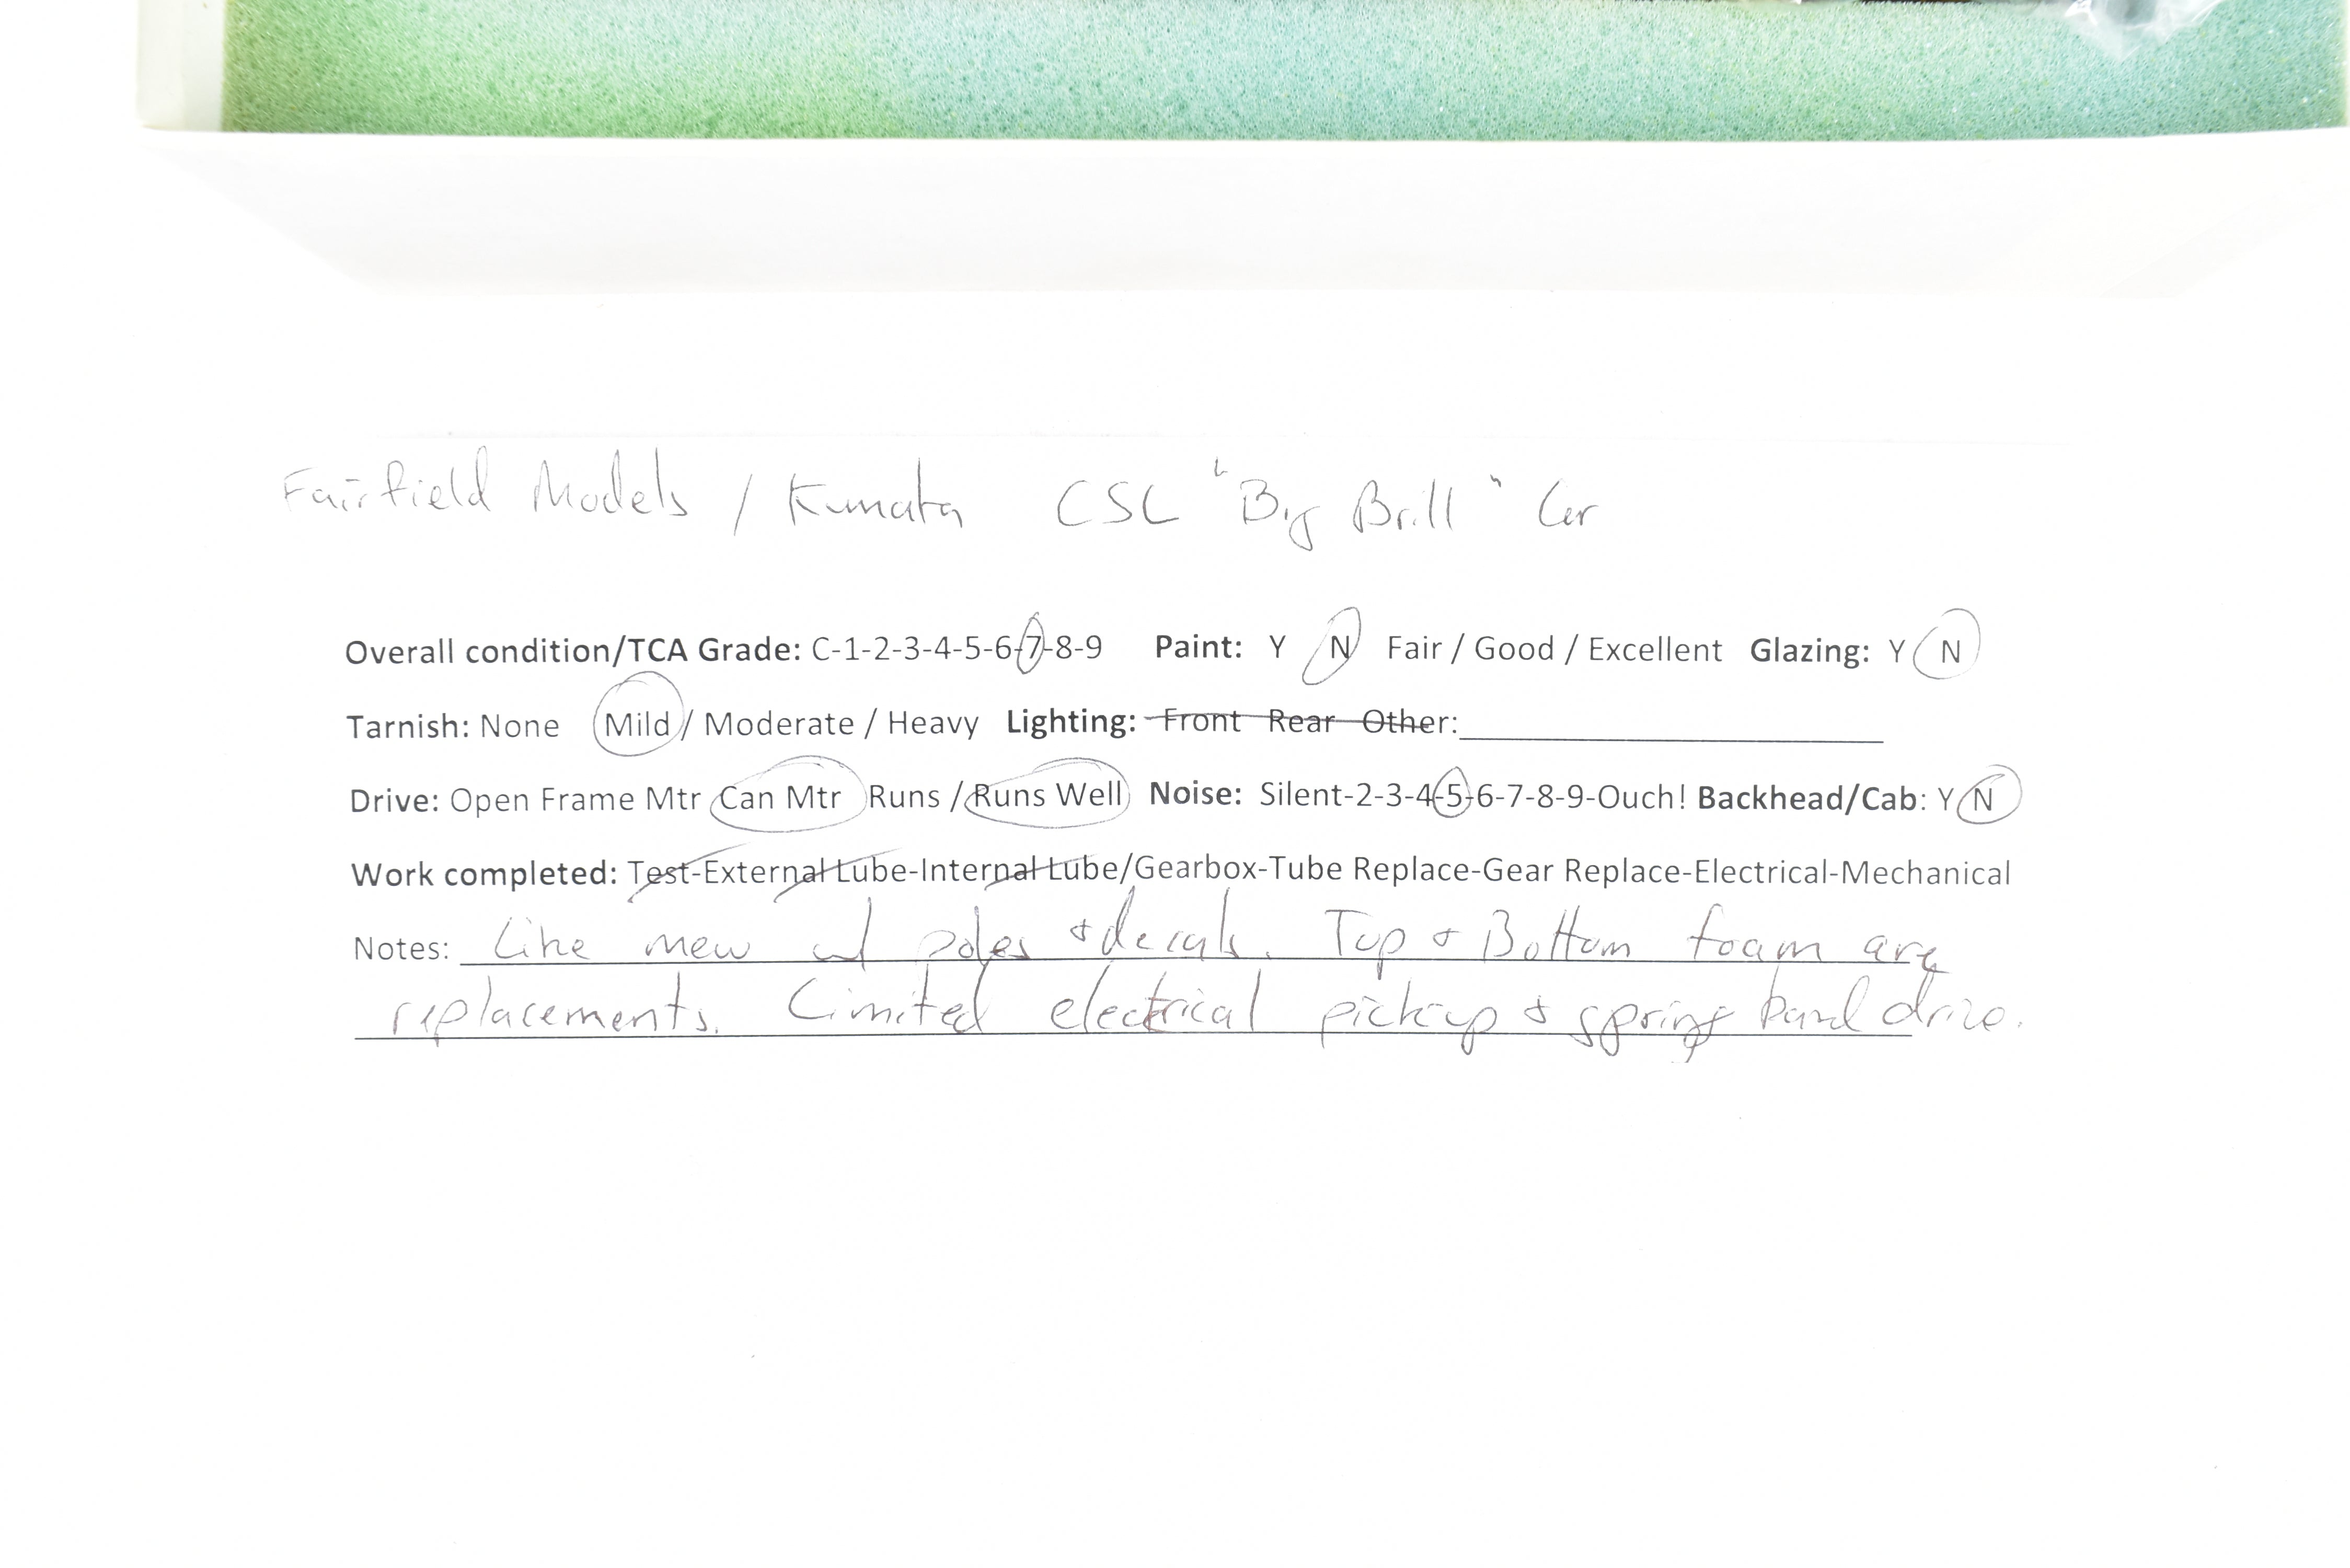 Fairfield Models / Kumata CSL "Big Brill" Car
Overall condition/TCA Grade: C-1-2-3-4-5-6-7-8-9 Paint: Y N Fair / Good / Excellent Glazing: Y N
Tarnish: None Mild / Moderate / Heavy Lighting: Front Rear Other:
Drive: Open Frame Mtr Can Mtr Runs / Runs Well Noise: Silent-2-3-4-5-6-7-8-9-Ouch! Backhead/Cab: Y N
Work completed: Test-External Lube-Internal Lube/Gearbox-Tube Replace-Gear Replace-Electrical-Mechanical
Notes: Like new w/ poles + decals. Top + Bottom foam are
replacements. Limited electrical pickup + spring band drive.